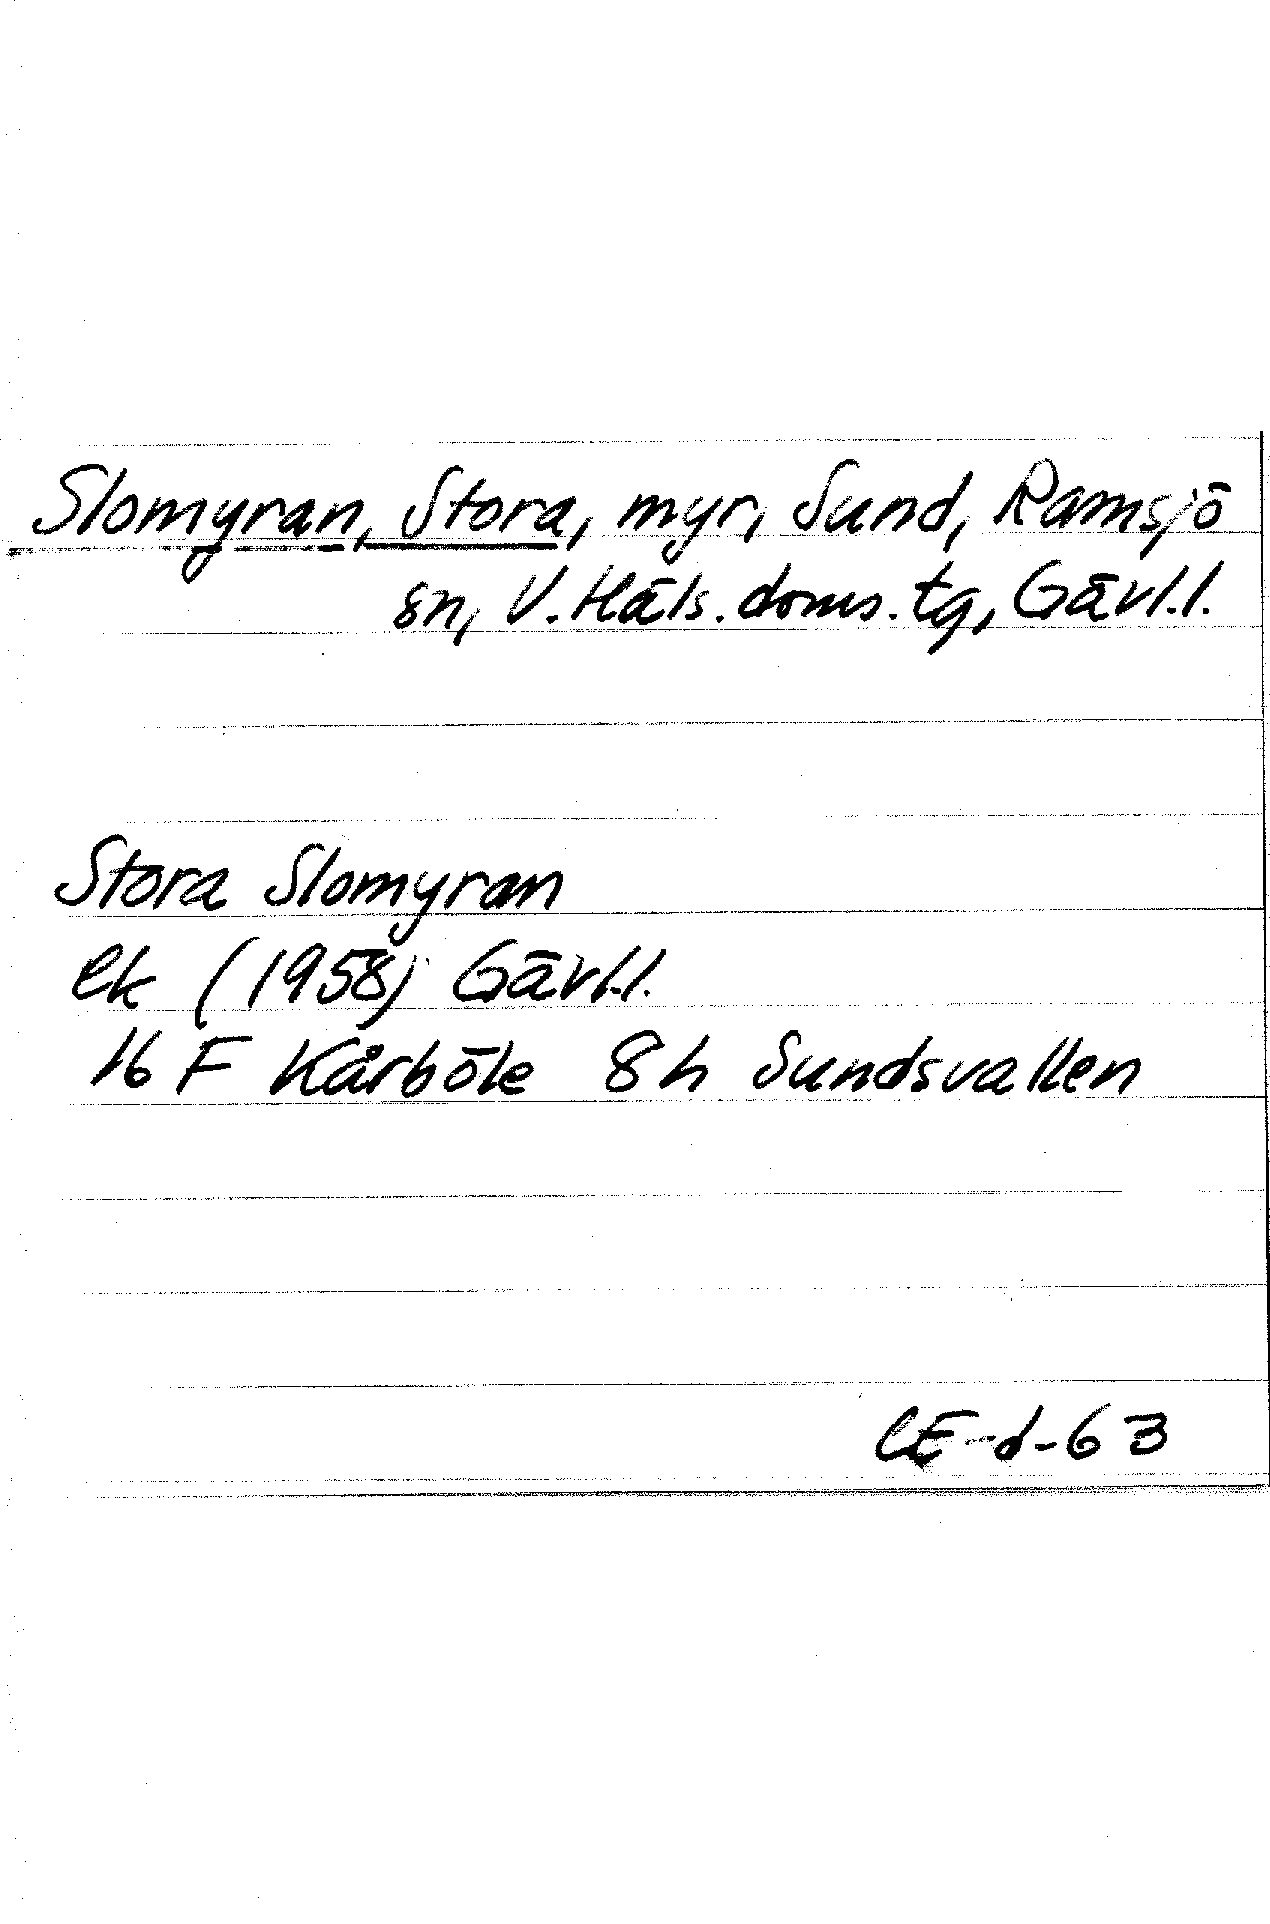 Slomyran, Stora, myr, Sund, Ramsjö
sn, V. Häls. doms. tg, Gävl.l.
Stora Slomyran
ek (1958) Gävl.l.
16 F Kårböle 8h Sundsvallen
CE-d-63